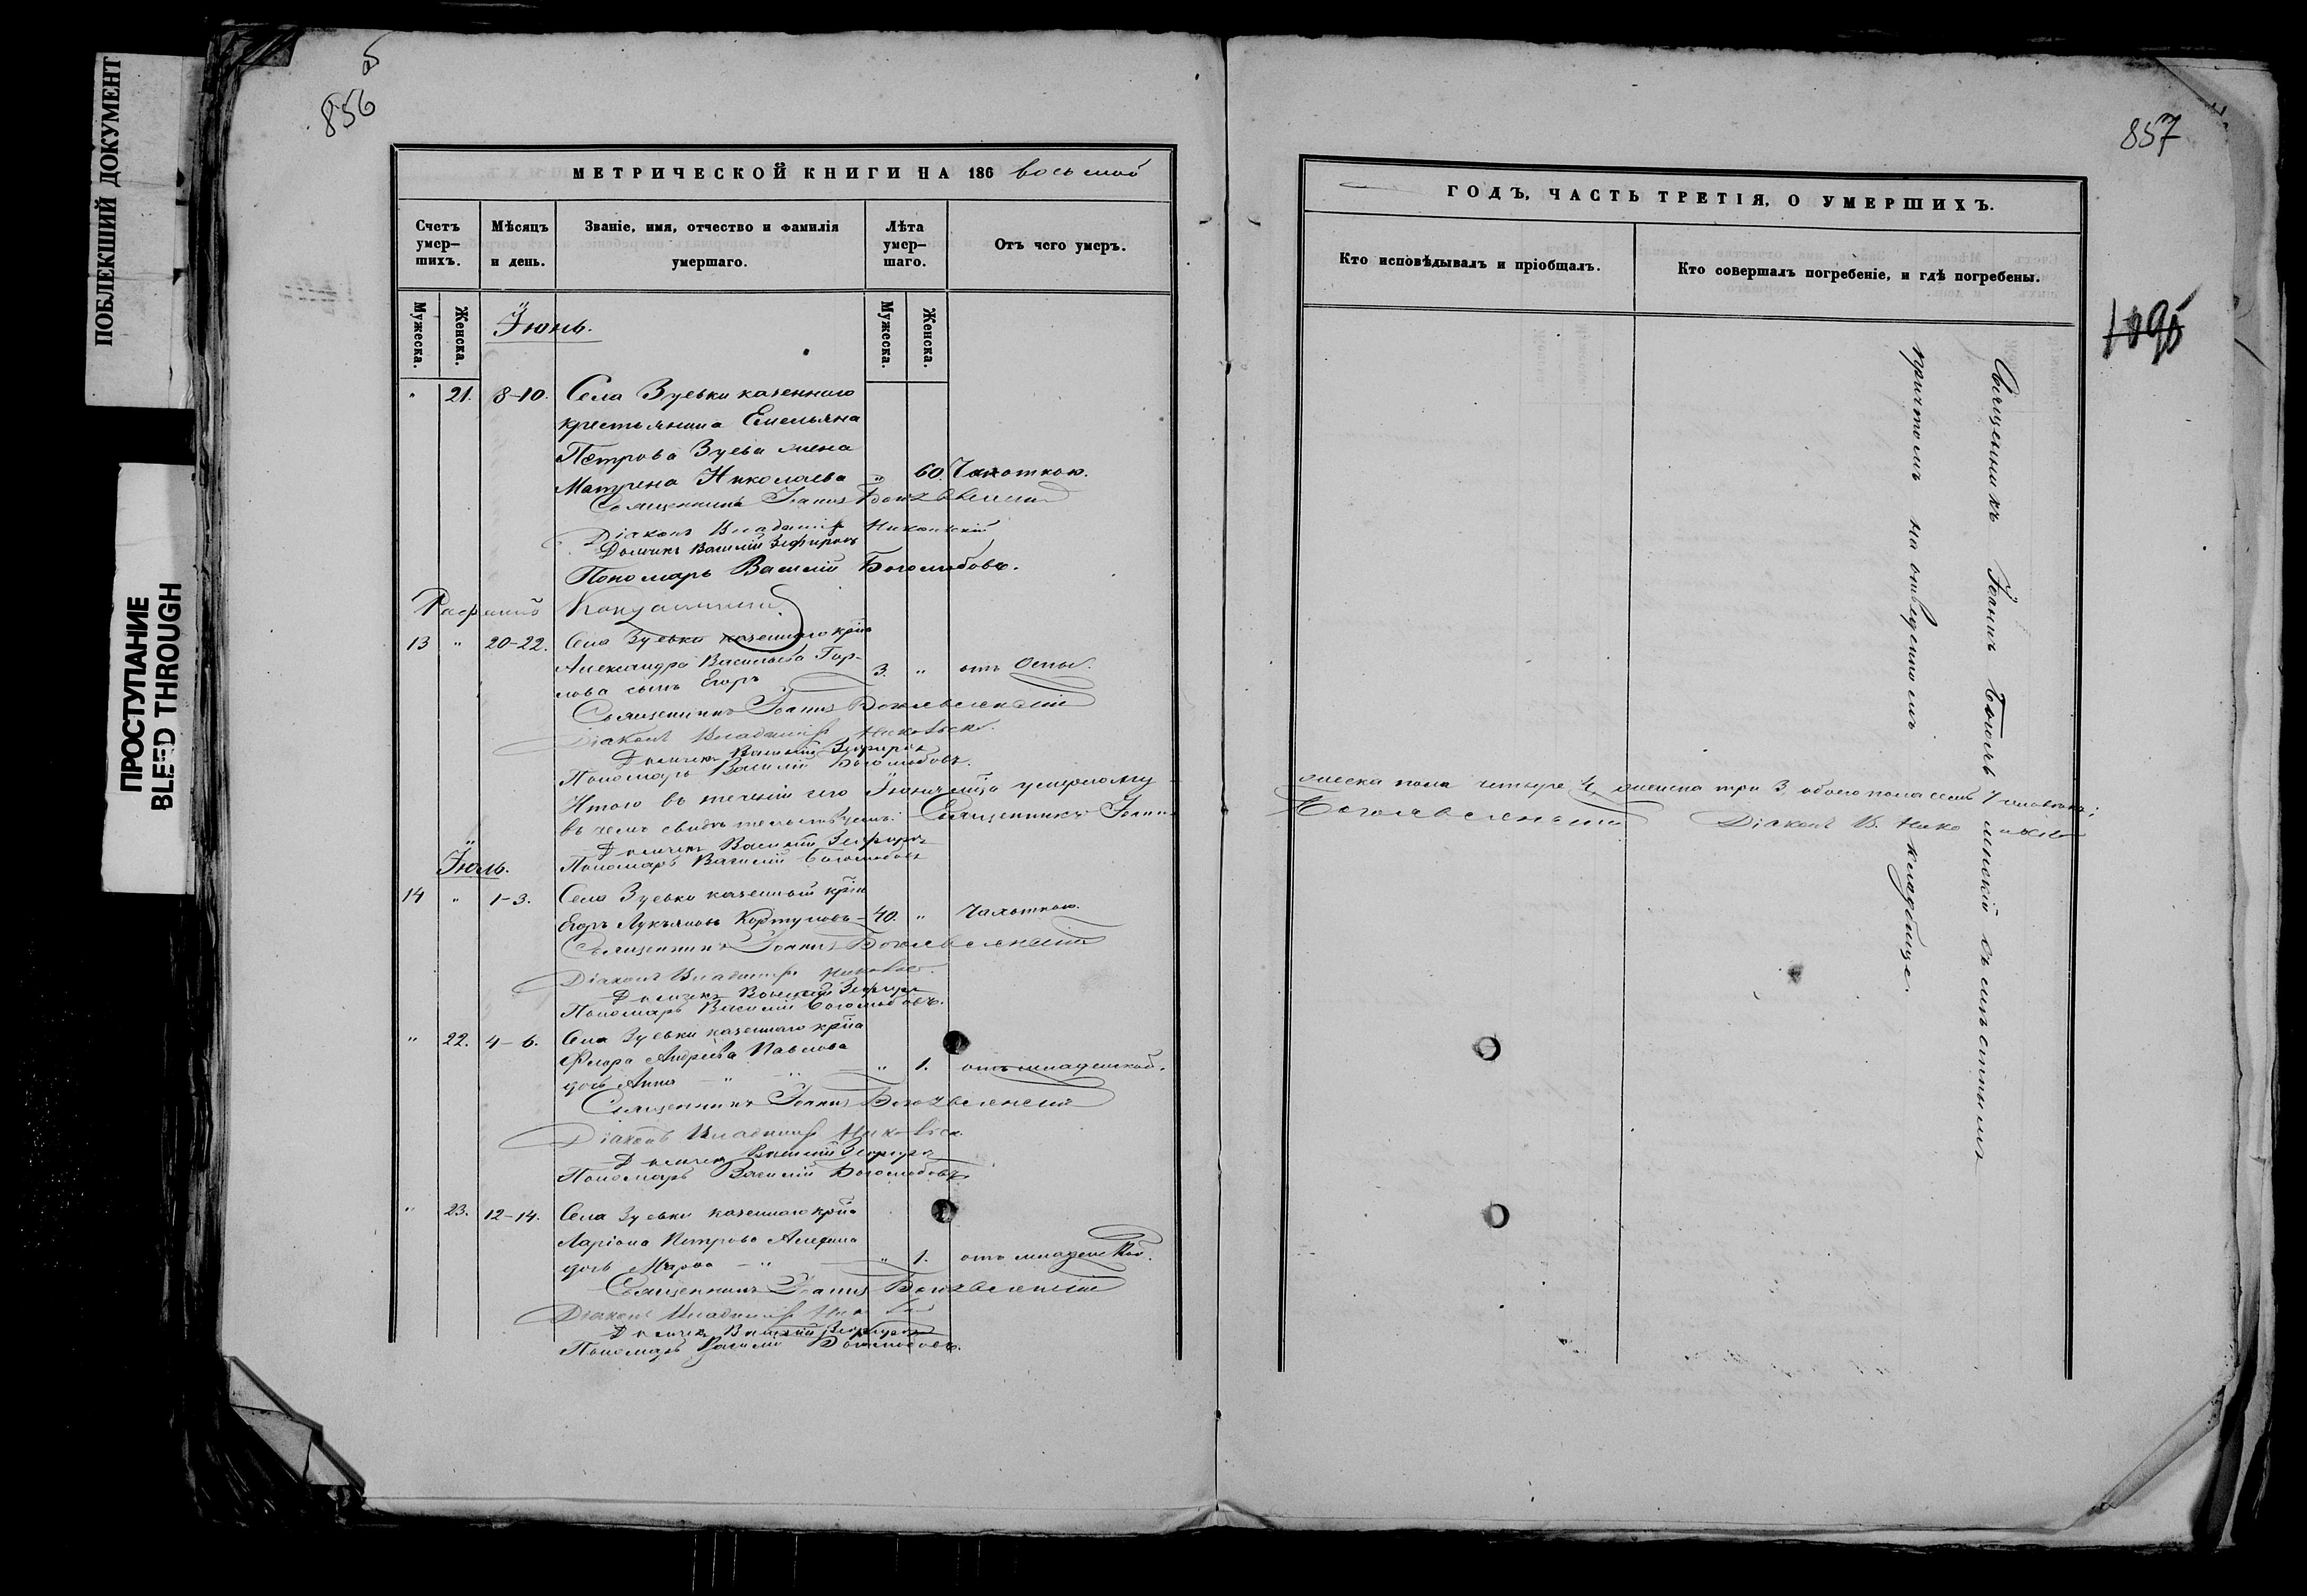 ПОБЛЕКШИЙ ДОКУМЕНТ
ПРОСТУПАНИЕ
BLEED THROUGH
856
МЕТРИЧЕСКОЙ КНИГИ НА 186 восьмой
Счетъ умер-шихъ.
Мѣсяцъ и день.
Званіе, имя, отчество и фамилія умершаго.
Лѣта умер-шаго.
Отъ чего умеръ.
Мужеска.
Женска.
Мужеска.
Женска.
Іюнь.
" 21. 8-10. Села Зуевки казеннаго
крестьянина Емельяна
Петрова Зуева жена
Матрена Николаева " 60. Чахоткою.
Священникъ Іоаннъ Богоявленскій
Діаконъ Владиміръ Никольскій
Дьячекъ Василій Зефировъ
Пономарь Василій Боголюбовъ.
13 " 20-22. Села Зуевки казеннаго крна
Александра Васильева Гор-
лова сынъ Егоръ 3. " отъ Оспы.
Священникъ Іоаннъ Богоявленскій
Діаконъ Владиміръ Никольск.
Дьячекъ Василій Зефировъ
Пономарь Василій Боголюбовъ.
Итого въ теченіи сего Іюня мца умерло му
въ чемъ свидѣтельствуемъ: Священникъ Іоаннъ
Дьячекъ Василій Зефировъ
Пономарь Василій Боголюбовъ
Іюль.
14 " 1-3. Села Зуевки казенный крнъ
Егоръ Лукьяновъ 40. " Чахоткою.
Священникъ Іоаннъ Богоявленскій
Діаконъ Владиміръ Никольск.
Дьячекъ Василій Зефировъ
Пономарь Василій Боголюбовъ.
" 22. 4-6. Села Зуевки казеннаго крна
Флора Андреева Павлова
дочь Анна — " — " 1. отъ младенской.
Священникъ Іоаннъ Богоявленскій
Діаконъ Владиміръ Никольск.
Дьячекъ Василій Зефировъ
Пономарь Василій Боголюбовъ
" 23. 12-14. Села Зуевки казеннаго крна
Ларіона Петрова
дочь Марѳа — " — " 1. отъ младенской.
Священникъ Іоаннъ Богоявленскій
Діаконъ Владиміръ
Дьячекъ Василій Зефировъ
Пономарь Василій Боголюбовъ.
857
ГОДЪ, ЧАСТЬ ТРЕТІЯ, О УМЕРШИХЪ.
Кто исповѣдывалъ и пріобщалъ.
Кто совершалъ погребеніе, и гдѣ погребены.
1095
Священникъ Іоаннъ Богоявленскій съ мѣстнымъ
причтомъ на отведенномъ кладбище.
жеска пола четыре 4, женска три 3, обоего пола семь 7 человѣкъ;
Богоявленскій Діаконъ В. Никольскій